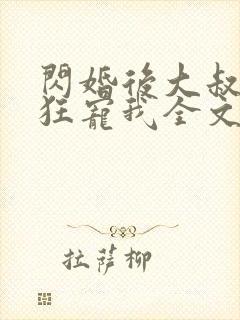 閃婚後大叔
狂寵我全文
拉薩柳